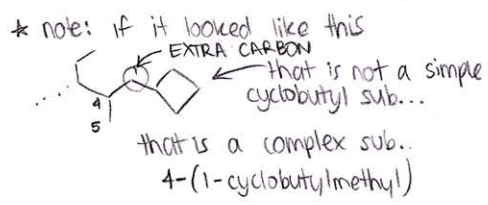 * note: if it looked like this
EXTRA CARBON
that is not a simple
cyclobutyl sub...
4
5
that is a complex sub..
4-(1-cyclobutylmethyl)